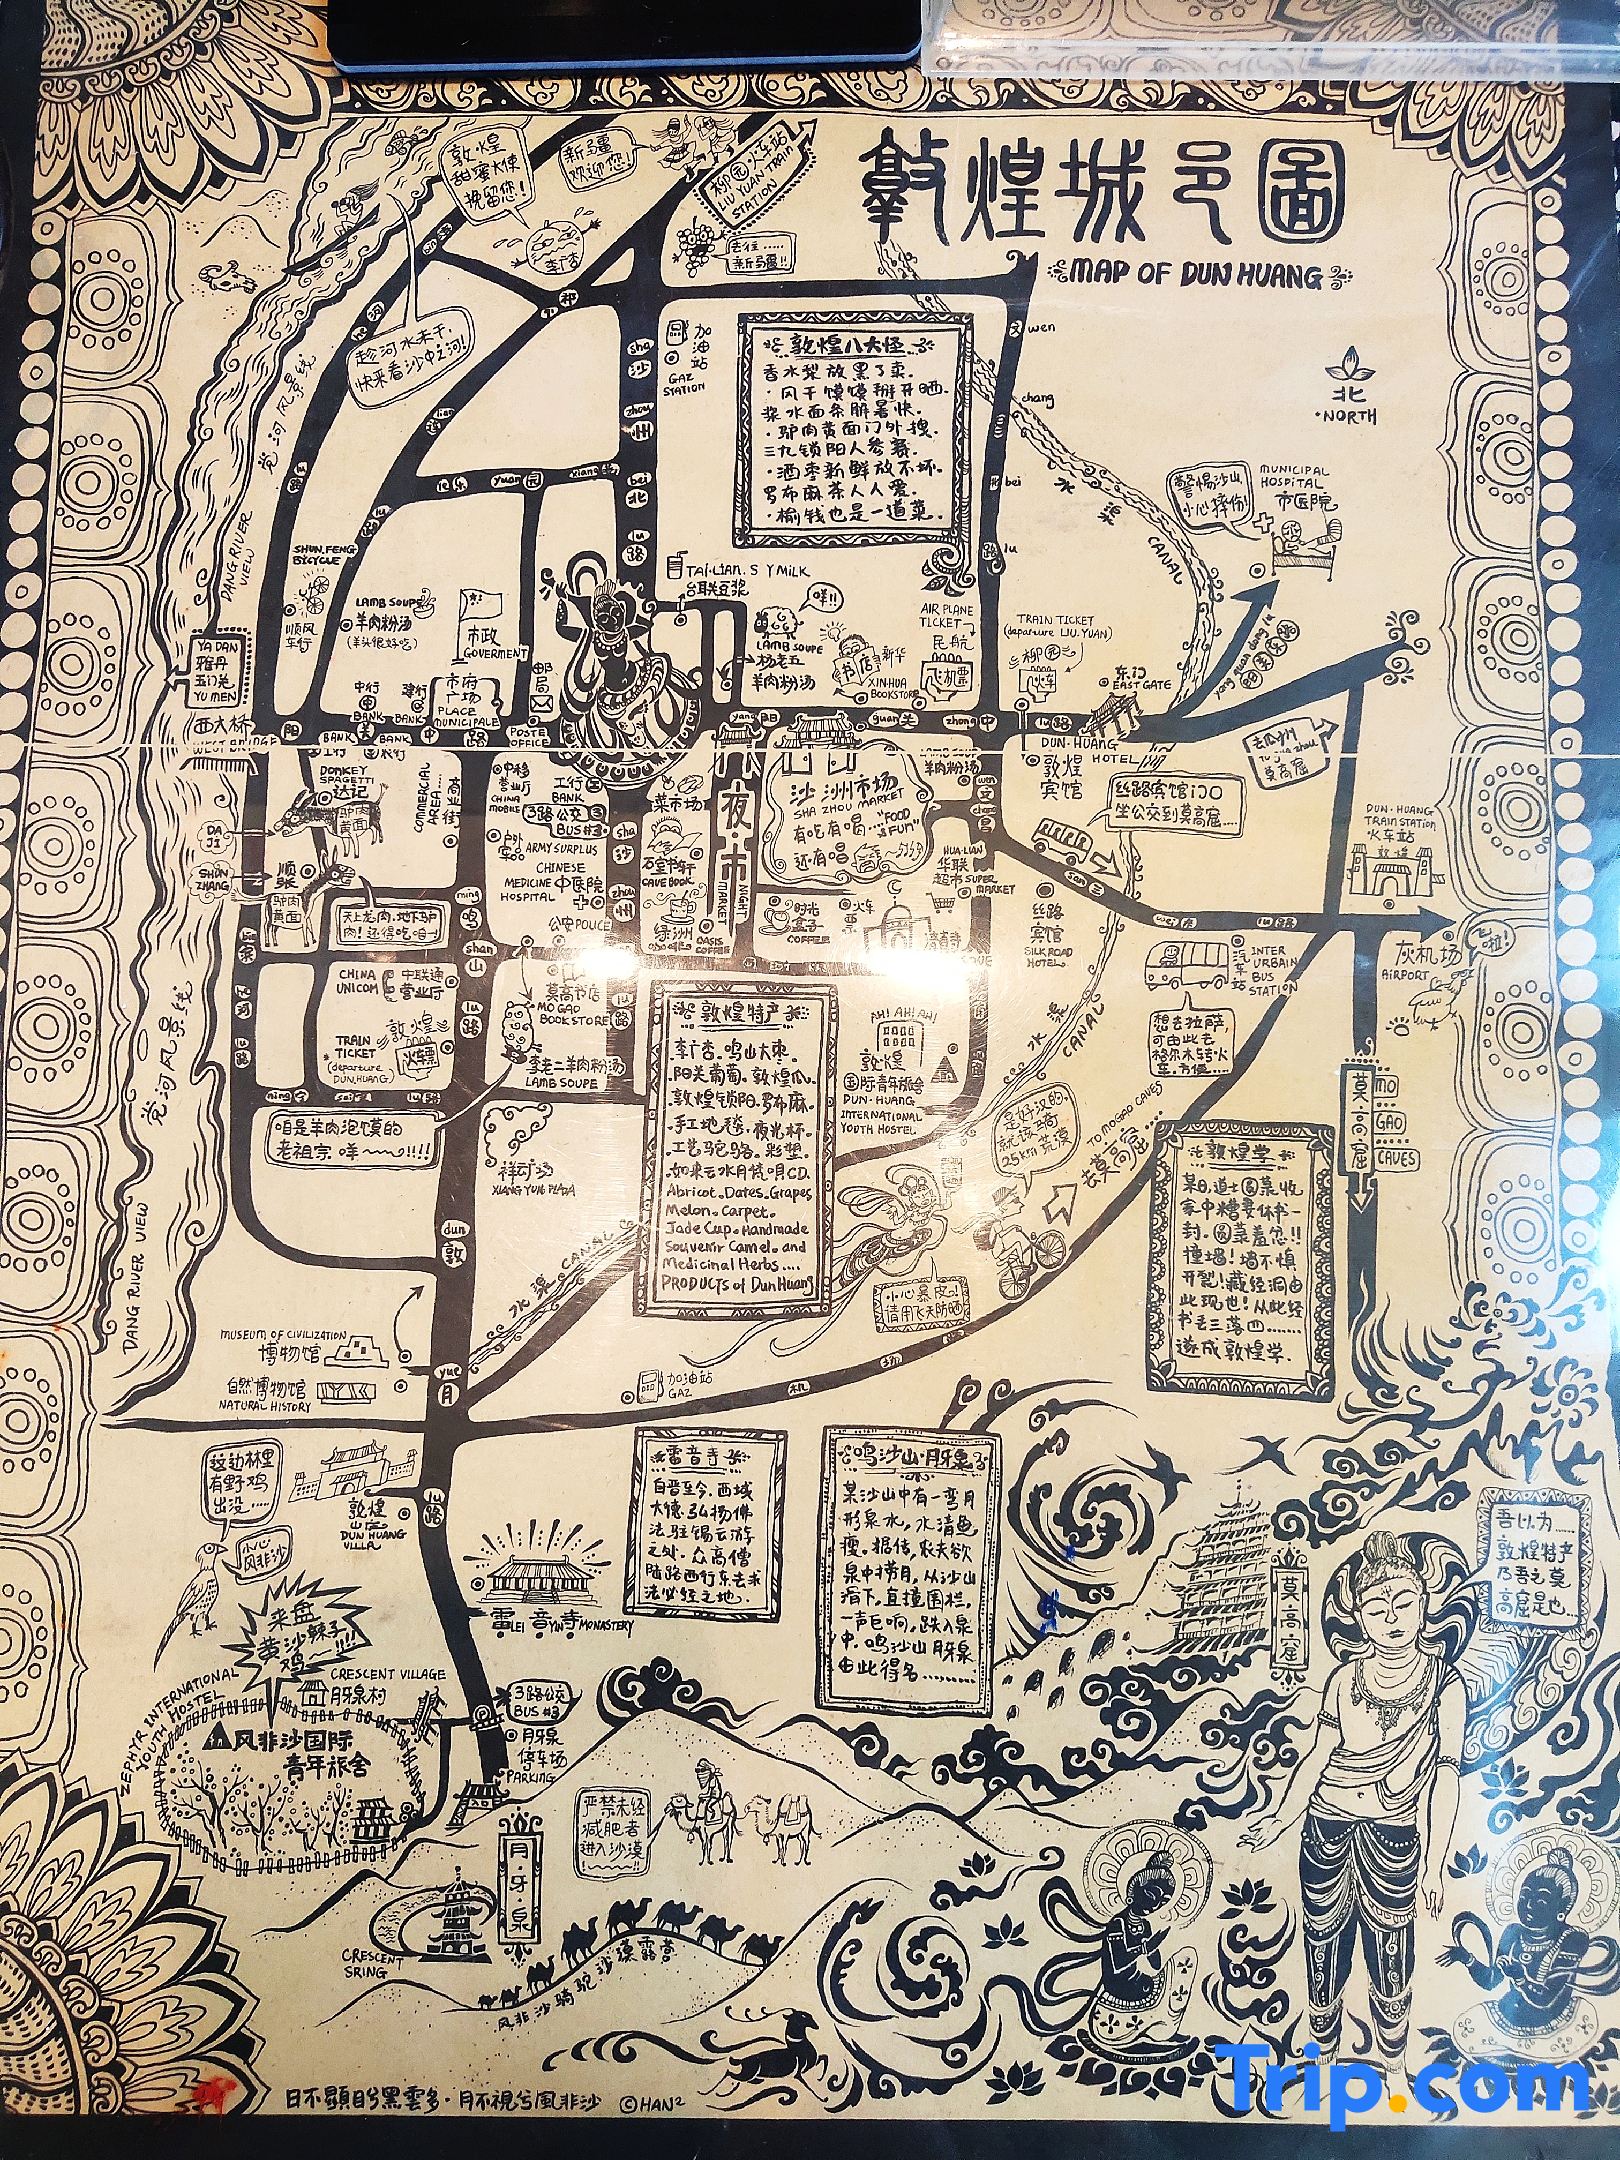 敦煌城邑圖
MAP OF DUN HUANG
北
NORTH
敦煌
甜蜜大使
挽留您!
新疆
欢迎您!
柳园火车站
LIU YUAN TRAIN
STATION
李广杏
去往......
新疆!!
趁河水未干,
快来看沙中之河!
党河风景线
DANG RIVER
VIEW
加油站
GAZ
STATION
敦煌八大怪
香水梨放黑了卖.
·风干馍馍掰开晒.
浆水面条解暑快.
·驴肉黄面门外拽.
三九锁阳人参赛.
·酒枣新鲜放不坏.
罗布麻茶人人爱.
·榆钱也是一道菜.
wen
chang
bei
lu
水渠
CANAL
警惕沙山
小心摔伤!
MUNICIPAL
HOSPITAL
市医院
sha
沙
zhou
州
bei
北
lu
路
yuan 园
xiang
SHUN.FENG
BICYCLE
顺风
车行
LAMB SOUPE
羊肉粉汤
(羊头很好吃)
市政
GOVERMENT
市府
广场
PLACE
MUNICIPALE
邮局
POSTE
OFFICE
中行
BANK
建行
BANK
BANK
BANK
TAI.LIAN.S Y MILK
台联豆浆
咩!!
LAMB SOUPE
杨老五
羊肉粉汤
书店
新华
XIN.HUA
BOOKSTORE
AIR PLANE
TICKET
民航
飞机票
TRAIN TICKET
(departure LIU.YUAN)
柳园
火车
东门
EAST GATE
yang guan dong lu
YA DAN
雅丹
玉门关
YU MEN
西大桥
WEST BRIDGE
阳
关
中
路
yang 阳
guan 关
zhong 中
lu 路
DUN.HUANG
HOTEL
敦煌
宾馆
去瓜州
莫高窟
DONKEY
SPAGETTI
达记
驴肉
黄面
DA
JI
SHUN
ZHANG
顺
张
驴肉
黄面
天上龙肉,地下驴
肉!还得吃咱~!
COMMERCIAL
AREA...
商业街
中移
营业厅
CHINA
MOBILE
工行
BANK
3路公交
BUS#3
户外
ARMY SURPLUS
CHINESE
MEDICINE 中医院
HOSPITAL
公安 POLICE
菜市场
石室书轩
CAVE BOOK
绿洲
OASIS
COFFEE
夜·市
NIGHT
MARKET
沙洲市场
SHA ZHOU MARKET
有吃有喝.."FOOD
&FUN"
还有唱
时光
盒子
COFFEE
火车
LAMB SOUP
羊肉粉汤
wen
文
chang
昌
HUA.LIAN
华联
超市 SUPER
MARKET
丝路宾馆门口
坐公交到莫高窟....
san 三
wei 危
lu 路
丝路
宾馆
SILK ROAD
HOTEL.
DUN.HUANG
TRAIN STATION
火车站
敦煌
灰机场
AIRPORT
飞啦!
INTER
URBAIN
BUS
STATION
汽车站
想去拉萨,
可由此去
格尔木转火
车.方便....
ming
鸣
shan
山
lu
路
sha
沙
zhou
州
lu
路
CHINA
UNICOM
中联通
营业厅
TRAIN
TICKET
(departure
DUN.HUANG)
敦煌
火车票
莫高书店
MO GAO
BOOK STORE
李老二羊肉粉汤
LAMB SOUPE
咱是羊肉泡馍的
老祖宗 咩~~~!!!!
祥云广场
XIANG YUN PLAZA
敦煌特产
李广杏.鸣山大枣.
阳关葡萄.敦煌瓜.
敦煌锁阳.罗布麻.
手工地毯.夜光杯.
工艺骆驼.彩塑.
如来云水月梵呗CD.
Abricot.Dates.Grapes
Melon.Carpet.
Jade Cup.Handmade
Souvenir Camel.and
Medicinal Herbs....
PRODUCTS of Dun Huang
AH! AH! AH!
敦煌
国际青年旅舍
DUN.HUANG
INTERNATIONAL
YOUTH HOSTEL
水渠 CANAL
是好汉的,
就该骑
25km荒漠
TO MOGAO CAVES
去莫高窟....
小心暴皮~!
请用飞天防晒
莫高窟
MO
GAO
CAVES
敦煌学
某日,道士圆箓收
家中糟妻休书一
封.圆箓羞忿!!
撞墙!墙不慎
开裂!藏经洞由
此现也!从此经
书丢三落四.......
遂成敦煌学.
党河风景线
DANG RIVER VIEW
水渠 CANAL
dun
敦
yue
月
lu
路
MUSEUM OF CIVILIZATION
博物馆
自然博物馆
NATURAL HISTORY
加油站
GAZ
机
场
这边林里
有野鸡
出没....
小心
风非沙
敦煌
山庄
DUN HUANG
VILLA
雷音寺
自晋至今.西域
大德.弘扬佛
法.驻锡云游
之处.众高僧
陆路西行东去求
法必经之地.
雷 LEI 音 YIN 寺 MONASTERY
鸣沙山·月牙泉
某沙山中有一弯月
形泉水,水清色
瘦.据传,农夫欲
泉中捞月,从沙山
滑下,直撞围栏,
一声巨响,跌入泉
中.鸣沙山月牙泉
由此得名.........
莫高窟
吾以为......
敦煌特产
乃吾之莫
高窟是也....
来盘
黄沙辣子
鸡~!!!
ZEPHYR INTERNATIONAL
YOUTH HOSTEL
CRESCENT VILLAGE
月牙泉村
风非沙国际
青年旅舍
3路公交
BUS #3
月牙泉
停车场
PARKING
严禁未经
减肥者
进入沙漠
月·牙·泉
CRESCENT
SRING
风非沙骑驼沙漠露营
日不顯目兮黑雲多·月不視兮風非沙 ©HAN²
Trip.com